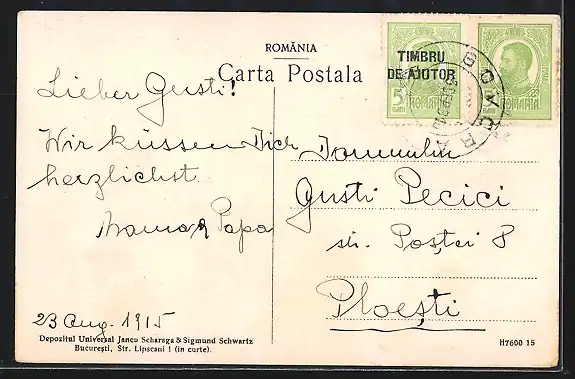 ROMÂNIA
Carta Postala
TIMBRU
DE AJUTOR
5
ROMANIA
5
ROMANIA
Lieber Gusti!
Wir küssen Dich
herzlichst.
Mama & Papa
23 Aug. 1915
Domnului
Gusti Pecici
str. Poştei 8
Ploeşti
Depozitul Universal Jancu Scharaga & Sigmund Schwartz
Bucureşti, Str. Lipscani 1 (in curte).
H7600 15